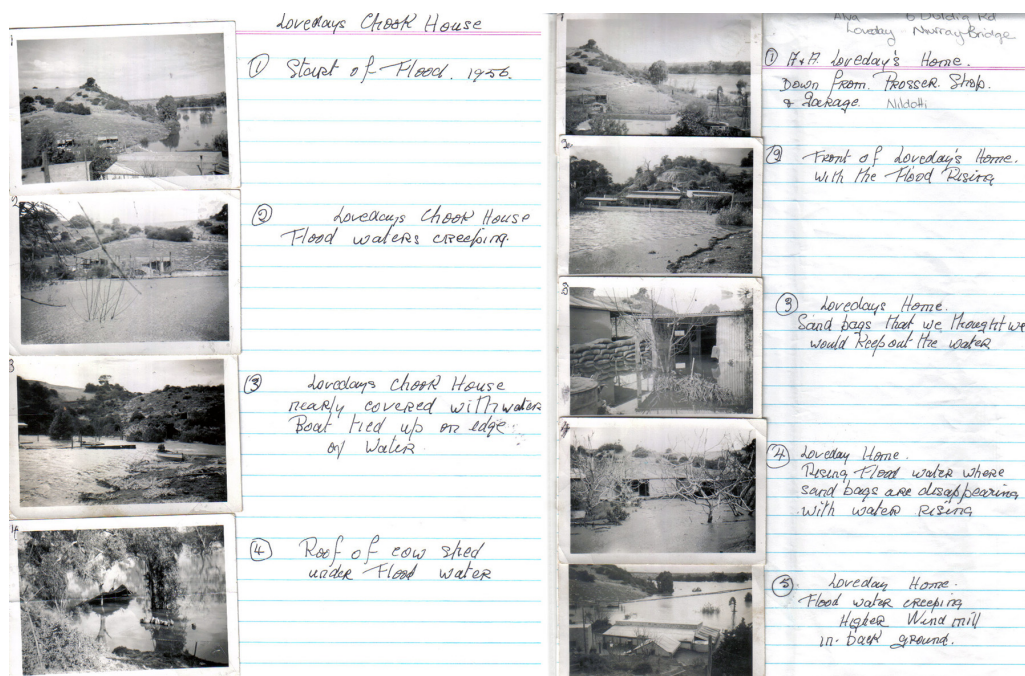 Lovedays Chook House
1
① Start of Flood. 1956.
2
② Lovedays Chook House
Flood waters creeping.
3
③ Lovedays Chook House
nearly covered with water
Boat tied up on edge
of Water.
④ Roof of cow shed
under Flood water
Alva 6 Doldig Rd
Loveday Murray Bridge
1
① A & A. Loveday's Home.
Down from Prosser Shop.
& Garage. Nildotti
2
② Front of Loveday's Home.
with the Flood Rising
3
③ Lovedays Home.
Sand bags that we thought we
would Keep out the water
4
④ Loveday Home.
Rising Flood water where
sand bags are disappearing
with water rising
⑤ Loveday Home.
Flood water creeping
Higher Wind mill
in back ground.